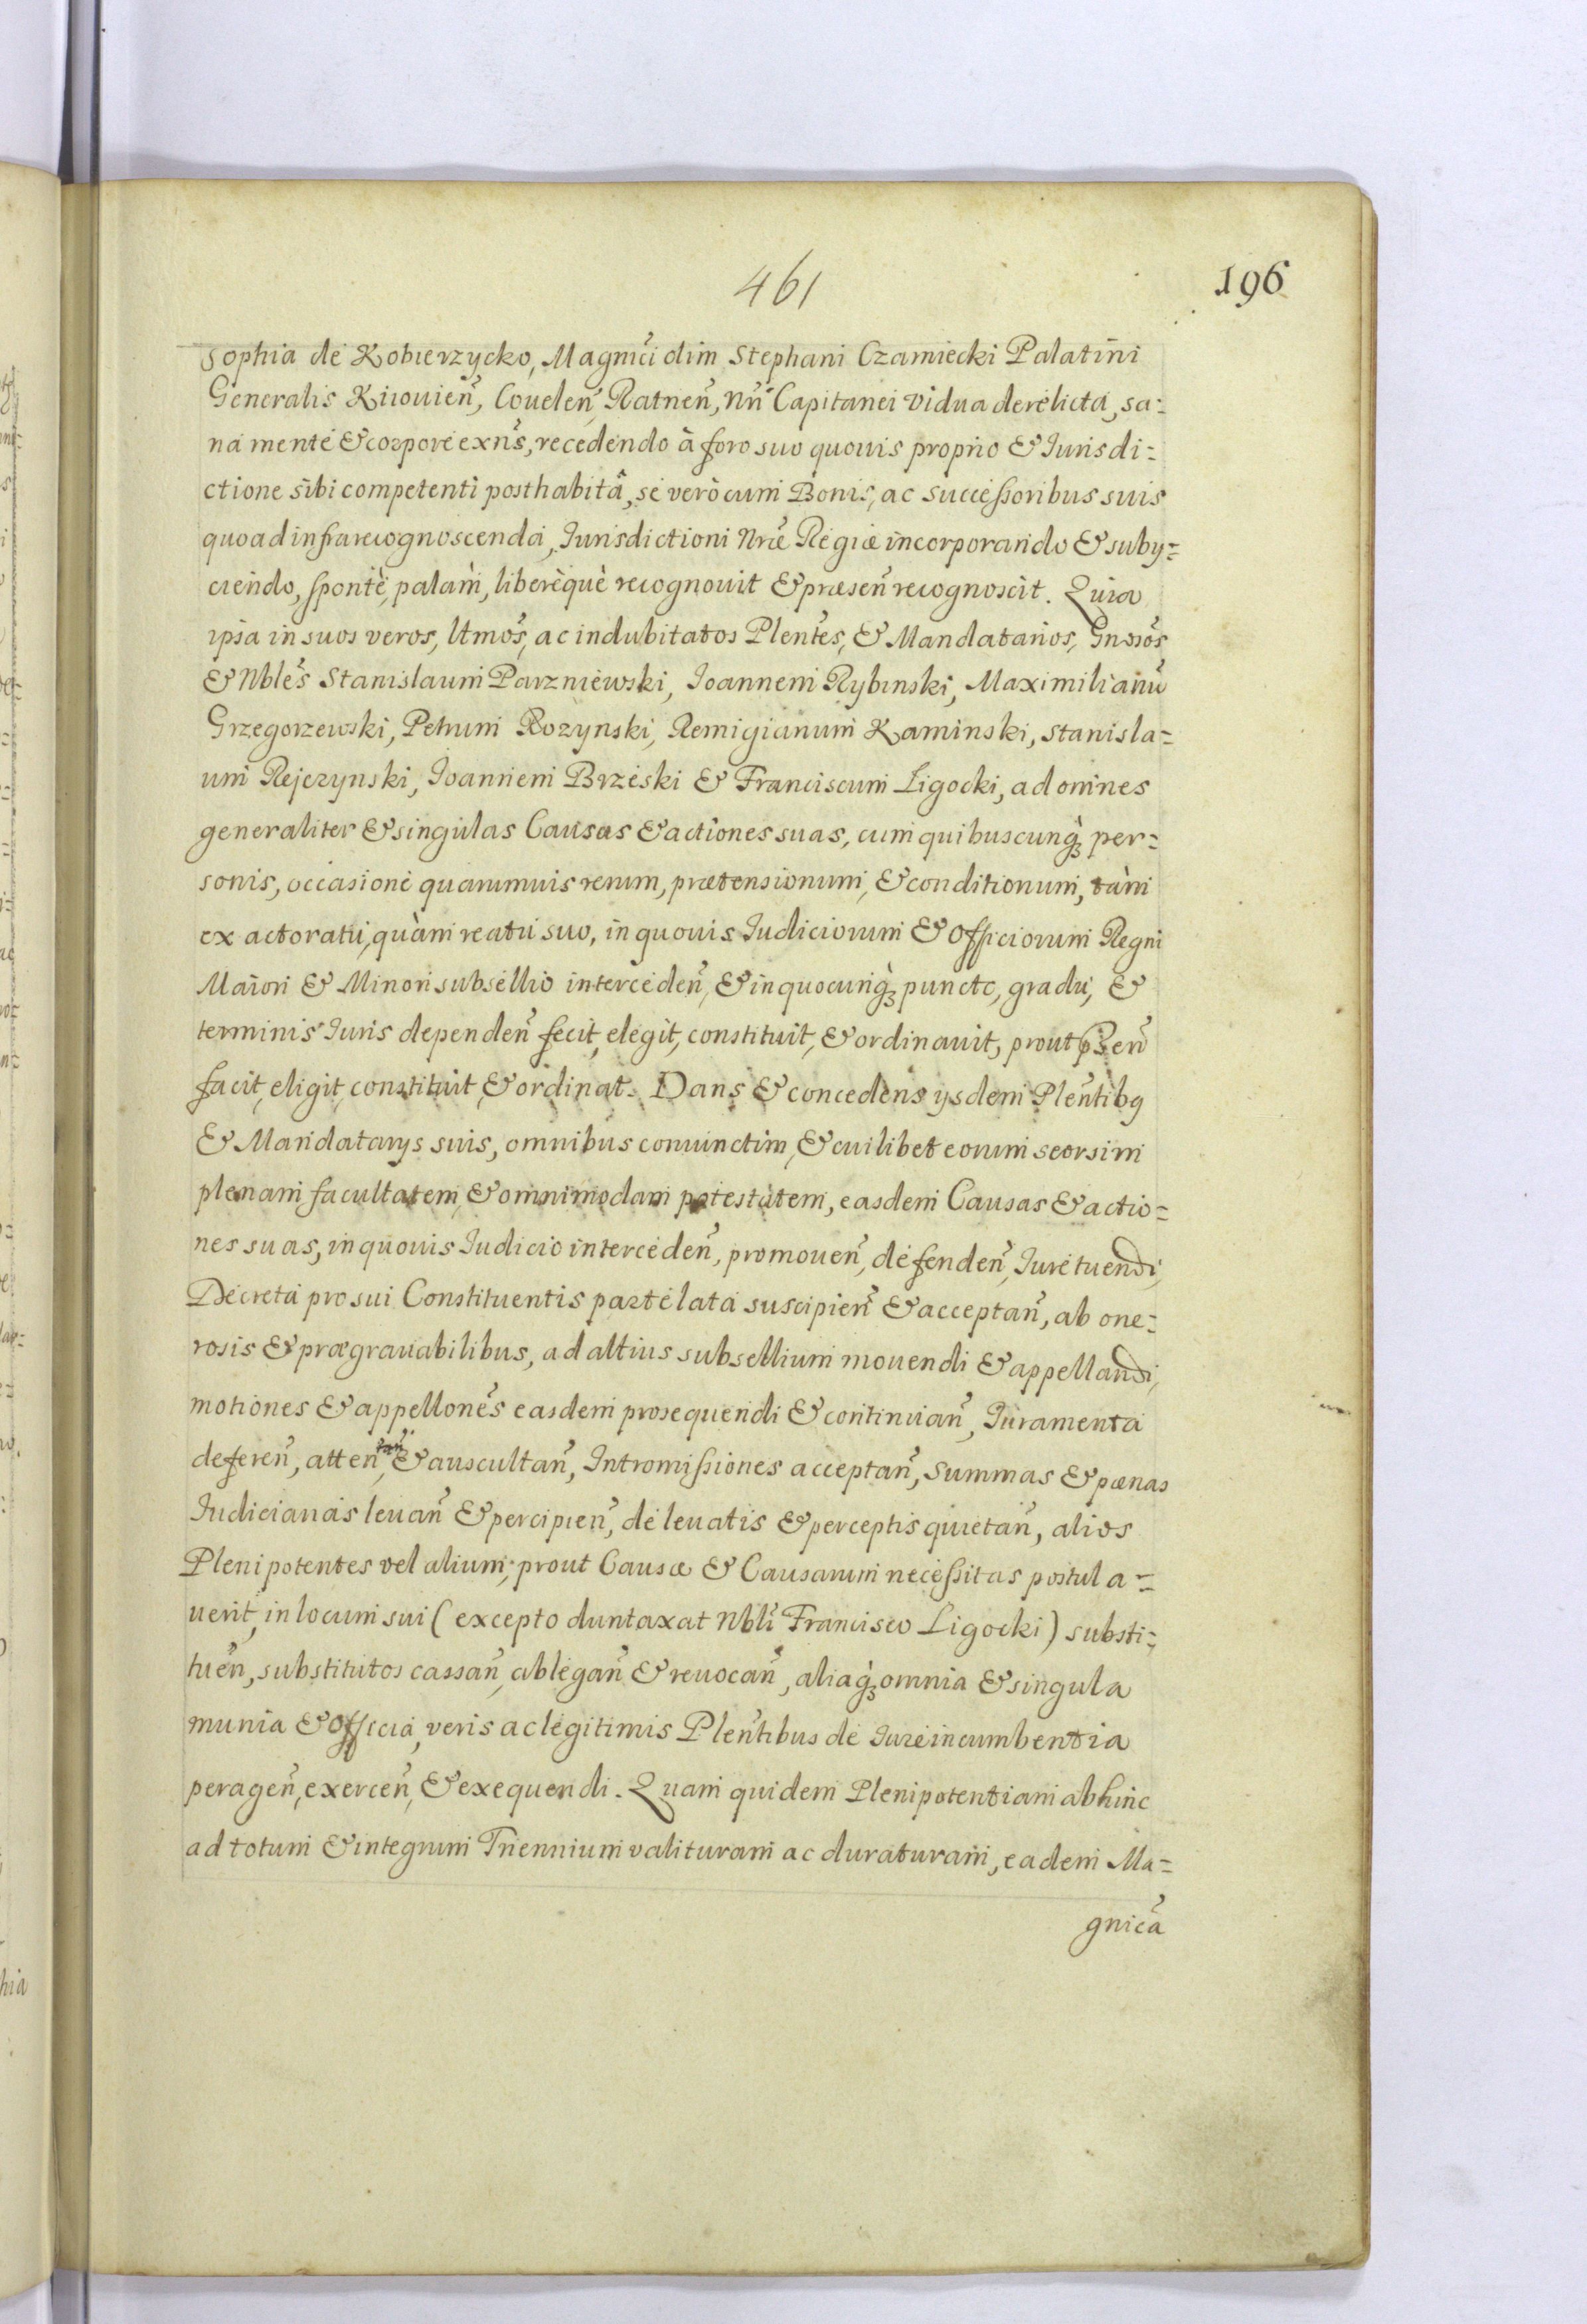 461
196
Sophia de Kobierzycko, Magnīci olim Stephani Czarniecki Palatini
Generalis Kiiouien̄, Couelen̄, Ratnen̄, nn̄ Capitanei vidua derelicta, sa=
na mente & corpore exns̄, recedendo à foro suo quouis proprio & Iurisdi=
ctione sibi competenti posthabitâ, se verò cum Bonis, ac successoribus suis
quoad infrarecognoscenda, Iurisdictioni Nræ Regiæ incorporando & suby=
ciendo, sponte, palàm, liberèquè recognouit & præsen̄ recognoscit. Quia
ipsa in suos veros, ltmōs, ac indubitatos Plentēs, & Mandatarios, Gnosōs
& Nblēs Stanislaum Parzniewski, Ioannem Rybinski, Maximilianū
Grzegorzewski, Petrum Rozynski, Remigianum Kaminski, Stanisla=
um Rejczynski, Ioannem Brzeski & Franciscum Ligocki, ad omnes
generaliter & singulas Causas & actiones suas, cum quibuscunq́ꝫ per=
sonis, occasione quarumuis rerum, prætensionum, & conditionum, tàm
ex actoratu, quàm reatu suo, in quouis Iudiciorum & Officiorum Regni
Maiori & Minori subsellio interceden̄, & in quocunq́ꝫ puncto, gradu, &
terminis Iuris dependen̄ fecit, elegit, constituit, & ordinauit, prout p̄sen̄
facit, eligit, constituit & ordinat. Dans & concedens ysdem Plentībꝯ
& Mandatarys suis, omnibus coniunctim, & cuilibet eorum seorsim
plenam facultatem, & omnimodam potestatem, easdem Causas & actio=
nes suas, in quouis Iudicio interceden̄, promouen̄, defenden̄, Iure tuendi,
Decreta pro sui Constituentis parte lata suscipien̄ & acceptan̄, ab one=
rosis & prægrauabilibus, ad altius subsellium mouendi & appellandi,
motiones & appellonēs easdem prosequendi & continuan̄, Iuramenta
deferen̄, atten tan̄, & auscultan̄, Intromissiones acceptan̄, Summas & pœnas
Iudiciarias leuan̄ & percipien̄, de leuatis & perceptis quietan̄, alios
Plenipotentes vel alium, prout Causæ & Causarum necessitas postula=
uerit, in locum sui (excepto duntaxat Nblī Francisco Ligocki) substi=
tuen̄, substitutos cassan̄, ablegan̄ & reuocan̄, aliaq́ꝫ omnia & singula
munia & Officia, veris ac legitimis Plentībus de Iure incumbentia
peragen̄, exercen̄, & exequendi. Quam quidem Plenipotentiam abhinc
ad totum & integrum Triennium valituram ac duraturam, eadem Ma=
gnicā